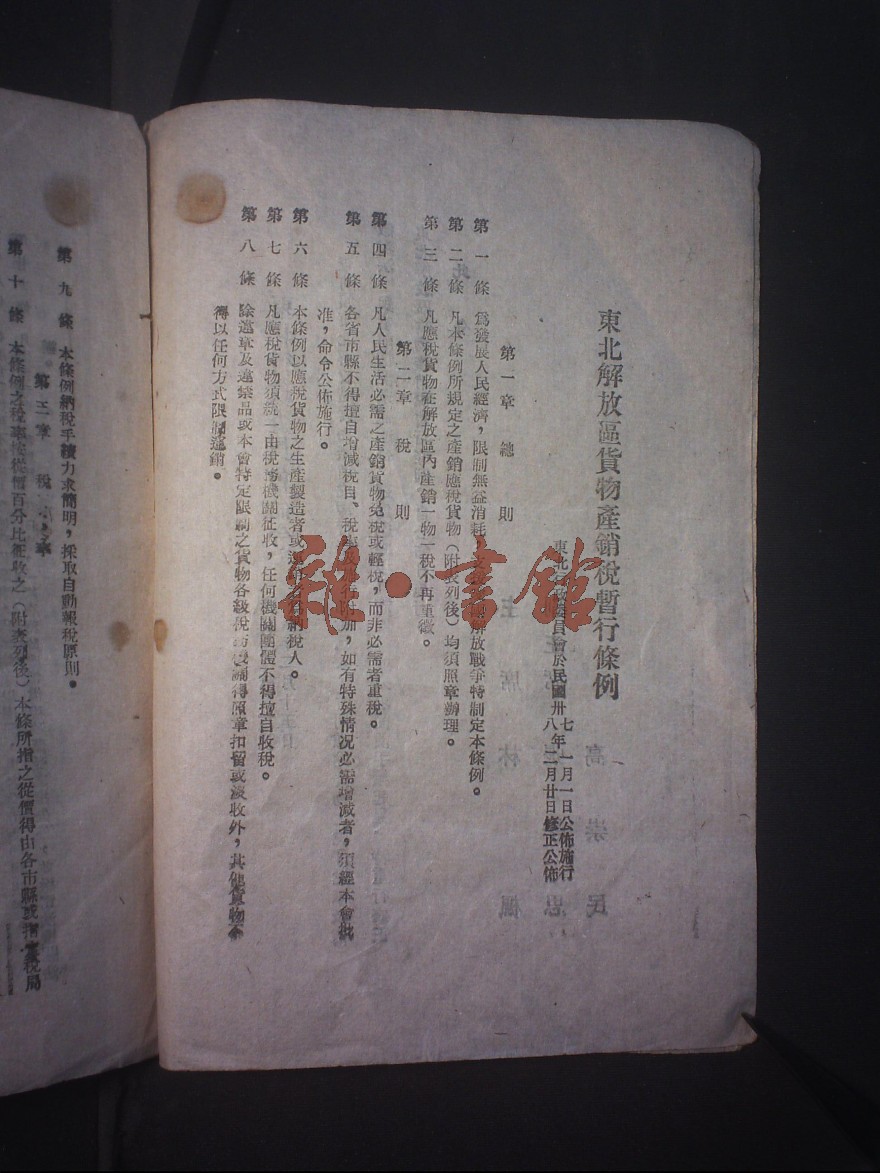 東北解放區貨物產銷稅暫行條例
東北行政委員會於民國卅七年一月一日公佈施行
八年二月廿日修正公佈
第一章 總則
第一條 為發展人民經濟,限制無益消耗,解放戰爭特制定本條例。
第二條 凡本條例所規定之產銷應稅貨物(附表列後)均須照章辦理。
第三條 凡應稅貨物在解放區內產銷一物一稅不再重徵。
第二章 稅則
第四條 凡人民生活必需之產銷貨物免稅或輕稅,而非必需者重稅。
第五條 各省市縣不得擅自增減稅目、稅率附加,如有特殊情況必需增減者,須經本會批
准,命令公佈施行。
第六條 本條例以應稅貨物之生產製造者或納稅人。
第七條 凡應稅貨物須統一由稅務機關征收,任何機關團體不得擅自收稅。
第八條 除違章及違禁品或本會特定限制之貨物各級稅務機關得照章扣留或沒收外,其他貨物不
得以任何方式限制運銷。
第九條 本條例納稅手續力求簡明,採取自動報稅原則。
第三章 稅率
第十條 本條例之稅率按從價百分比征收之(附表列後)本條所指之從價得由各市縣或指定稅局
雜·書館